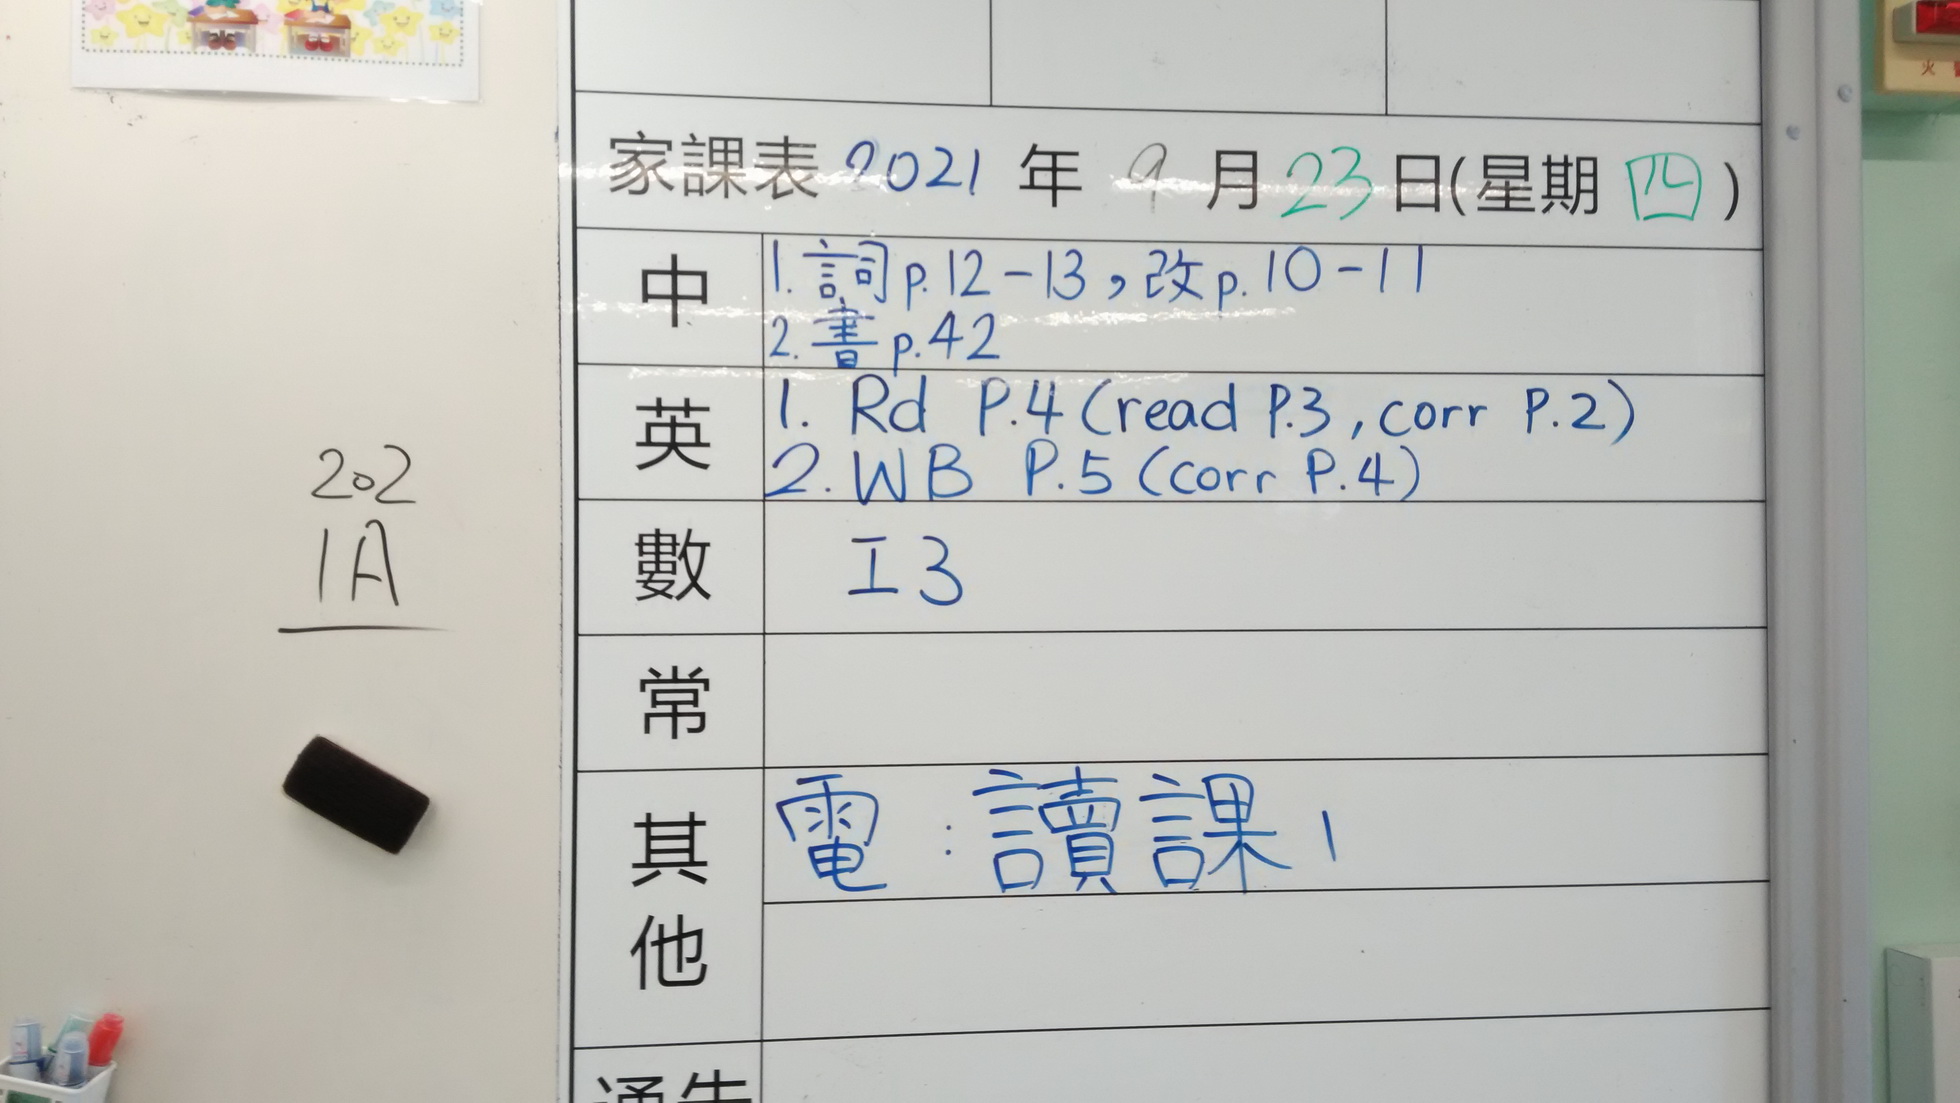 家課表 2021 年 9 月 23 日(星期 四)
中
1. 詞 p.12-13，改 p.10-11
2. 書 p.42
英
1. Rd P.4 (read P.3, corr P.2)
2. WB P.5 (corr P.4)
數
I3
常
其他
電：讀課1
通告
202
1A
火